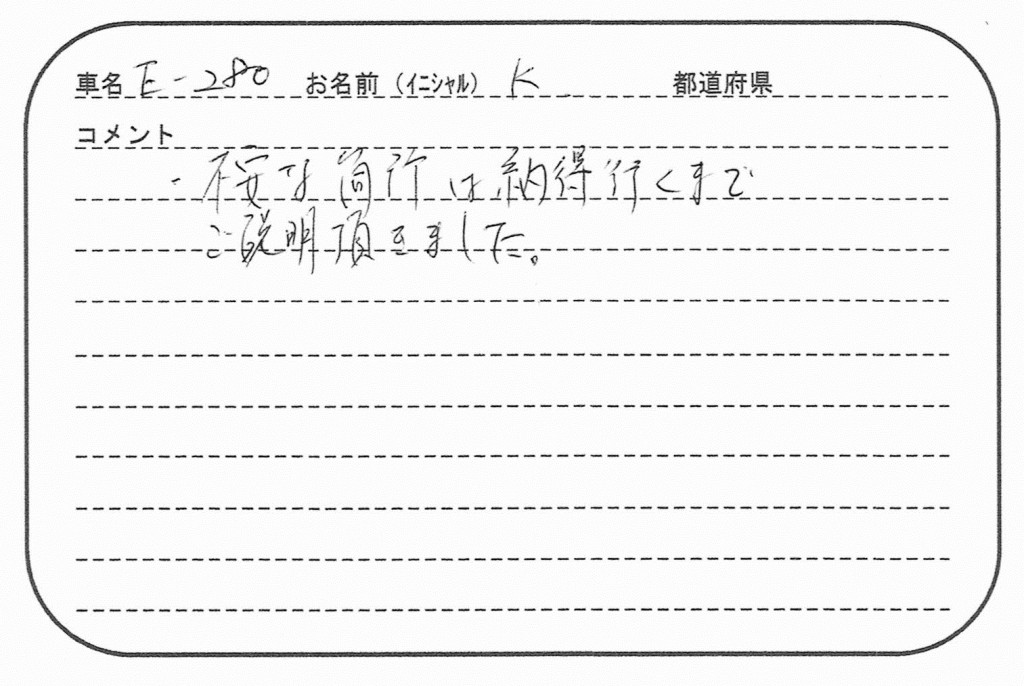 車名 E-280 お名前（イニシャル） K 都道府県
コメント
・不安な箇所は納得行くまで
ご説明頂きました。